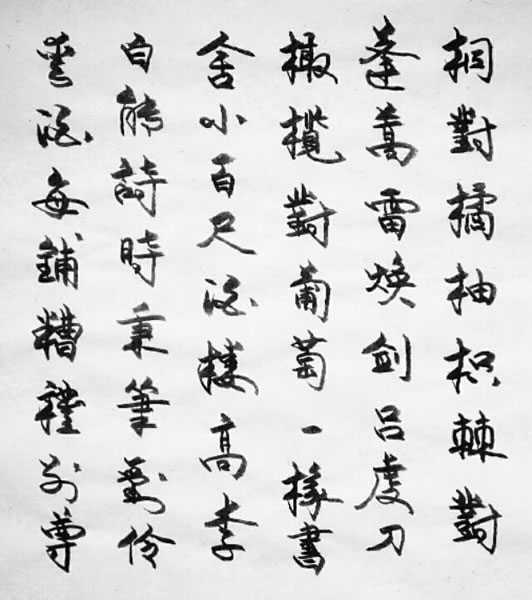 桐對橘柚枳棘對
蓬蒿雷煥劍呂虔刀
橄欖對葡萄一椽書
舍小百尺酒樓高李
白能詩時秉筆劉伶
愛酒每鋪糟禮別尊